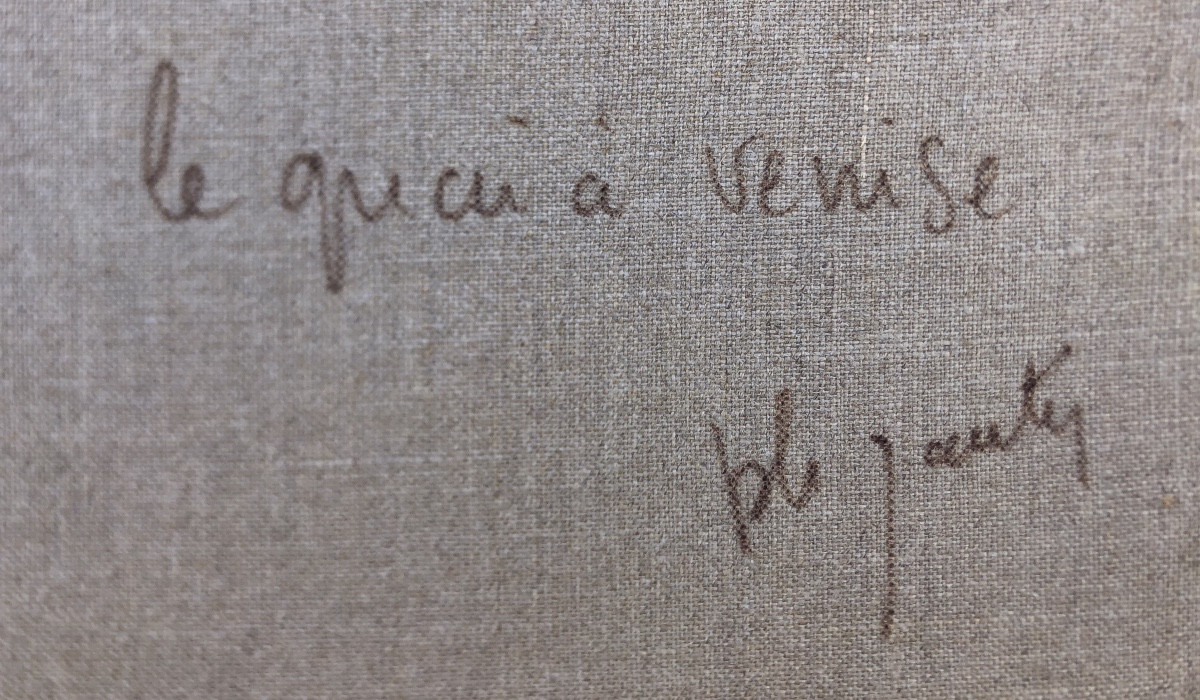 le quai à venise
ph jauty